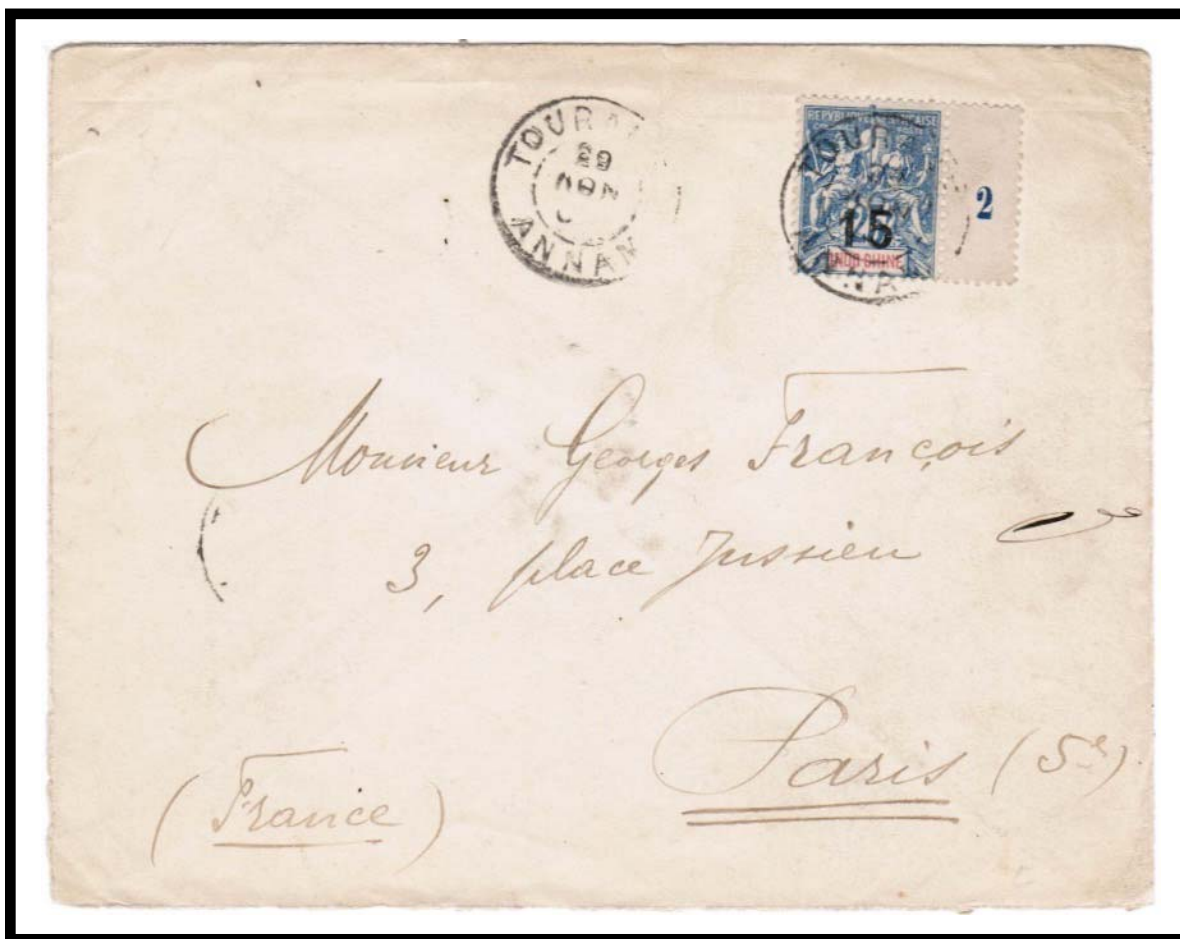 ANNAM
REPUBLIQUE FRANCAISE
15
INDO-CHINE
2
Monsieur Georges François
3, place Jussieu
Paris (5e)
(France)